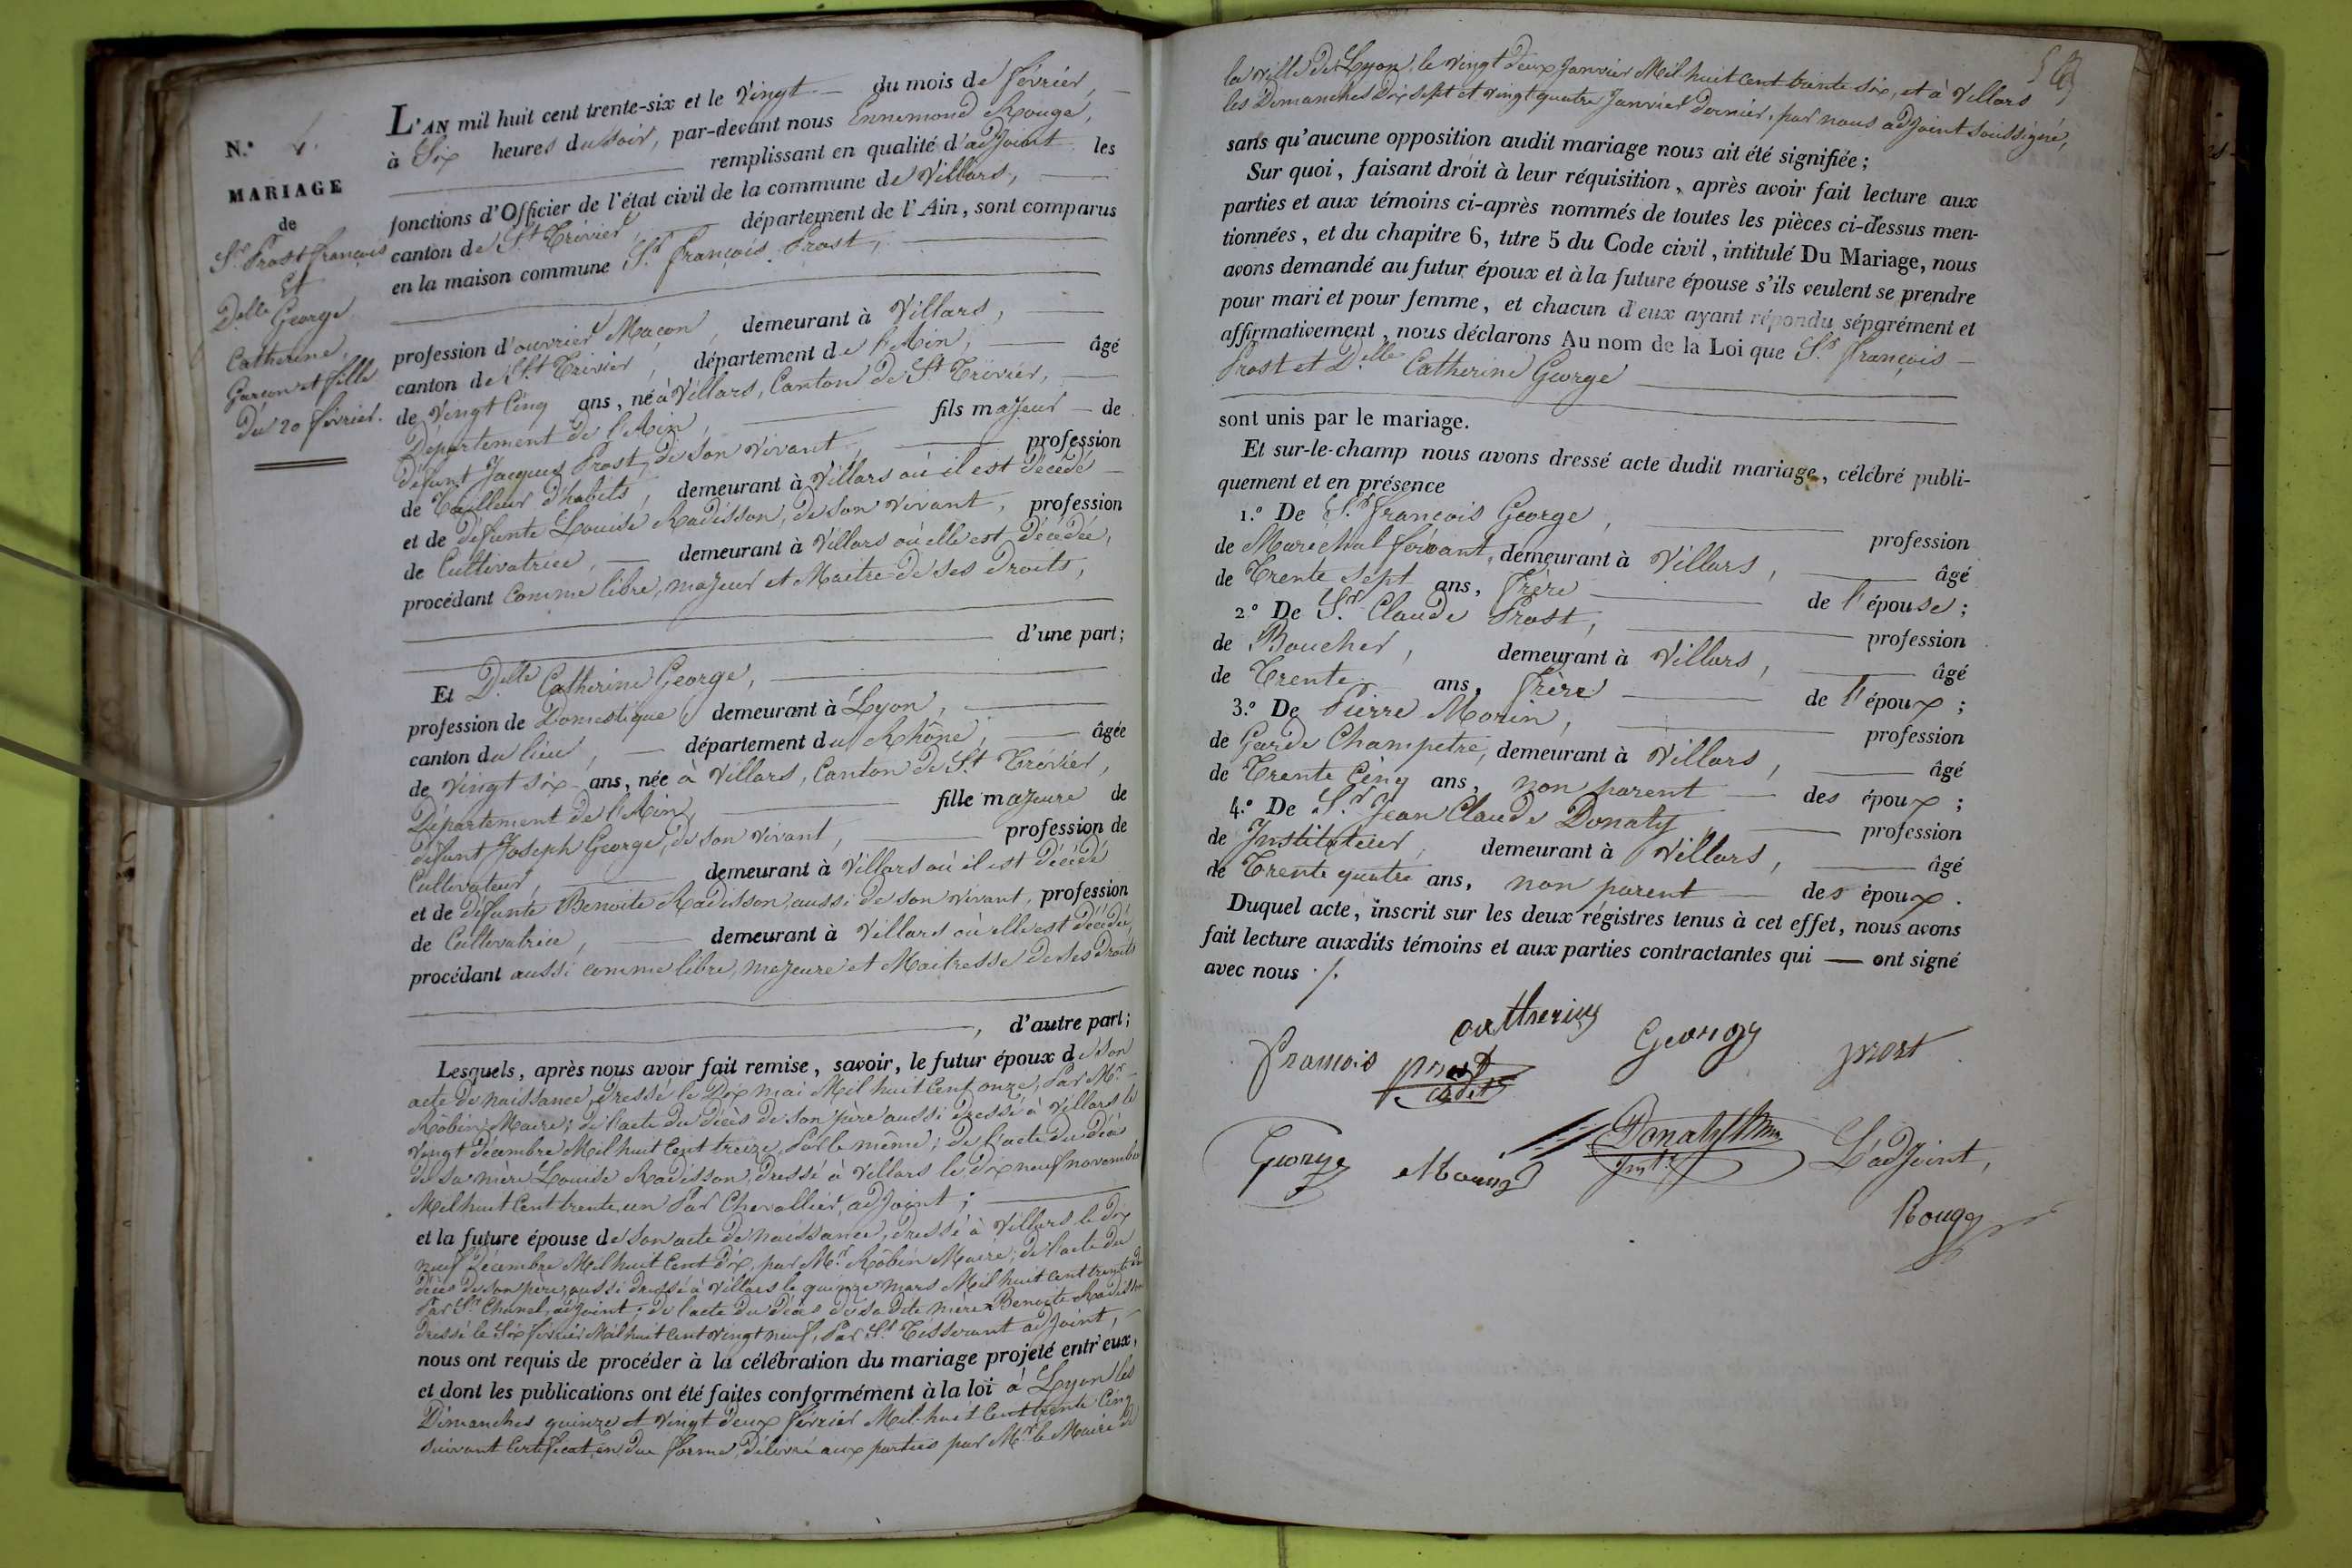 N.º
MARIAGE
de
S.r Prost françois
Et
D.elle George
Catherine,
Garçon et fille
Du 20 février.
L'AN mil huit cent trente-six et le Vingt du mois de février,
à Six heures du soir, par-devant nous Ennemond Rouge,
remplissant en qualité d'adjoint les
fonctions d'Officier de l'état civil de la commune de Villars,
canton de St Trivier, département de l'Ain, sont comparus
en la maison commune S.r françois Prost,
profession d'ouvrier Maçon, demeurant à Villars,
canton de St Trivier, département de l'Ain, âgé
de Vingt Cinq ans, né à Villars, Canton de St Trivier,
Département de l'Ain, fils majeur de
défunt Jacques Prost, de son vivant, profession
de Tailleur d'habits, demeurant à Villars où il est décédé
et de défunte Louise Radisson, de son vivant, profession
de Cultivatrice, demeurant à Villars où elle est décédée,
procédant Comme libre, majeur et Maitre de ses Droits,
d'une part;
Et D.elle Catherine George,
profession de Domestique, demeurant à Lyon,
canton du lieu, département du Rhône, âgée
de Vingt six ans, née à Villars, Canton de St Trivier,
Département de l'Ain, fille majeure de
défunt Joseph George, de son vivant, profession de
Cultivateur, demeurant à Villars où il est décédé
et de défunte Benoite Radisson, aussi de son vivant, profession
de Cultivatrice, demeurant à Villars où elle est décédée,
procédant aussi comme libre, majeure et Maitresse de ses Droits
, d'autre part;
Lesquels, après nous avoir fait remise, savoir, le futur époux de son
acte de naissance, dressé le Dix mai Mil huit Cent onze, Par Mr
Robin Maire; de l'acte du décès de son père aussi dressé à Villars le
Vingt décembre Mil huit Cent treize, Par le même; de l'acte du décès
de sa mère Louise Radisson, dressé à Villars le dix neuf novembre
Mil huit Cent trente un Par Chevallier, adjoint;
et la future épouse de son acte de naissance, dressé à Villars le dix
neuf Décembre Mil huit Cent dix, par Mr. Robin Maire; de l'acte du
décès de son père, aussi dressé à Villars le quinze mars Mil huit cent trente
Par Sr Chanel, adjoint; de l'acte du décès de sa dite mère Benoite Radisson
dressé le Six février Mil huit Cent Vingt neuf, Par Sr Tisserant adjoint,
nous ont requis de procéder à la célébration du mariage projeté entr'eux,
et dont les publications ont été faites conformément à la loi à Lyon les
Dimanches quinze et Vingt deux février Mil huit Cent trente Cinq
suivant Certificat en due forme, Délivré aux parties par Mr. le Maire de
la ville de Lyon, le vingt deux Janvier Mil huit cent trente six, et à Villars
les Dimanches Dix sept et vingt quatre Janvier dernier, par nous adjoint soussigné,
sans qu'aucune opposition audit mariage nous ait été signifiée;
Sur quoi, faisant droit à leur réquisition, après avoir fait lecture aux
parties et aux témoins ci-après nommés de toutes les pièces ci-dessus men-
tionnées, et du chapitre 6, titre 5 du Code civil, intitulé Du Mariage, nous
avons demandé au futur époux et à la future épouse s'ils veulent se prendre
pour mari et pour femme, et chacun d'eux ayant répondu séparément et
affirmativement, nous déclarons Au nom de la Loi que Sr. françois
Prost et D.elle Catherine George
sont unis par le mariage.
Et sur-le-champ nous avons dressé acte dudit mariage, célébré publi-
quement et en présence
1.º De S.r françois George, profession
de Maréchal ferrant, demeurant à Villars, âgé
de Trente sept ans, frère de l'épouse;
2.º De S.r Claude Prost, profession
de Boucher, demeurant à Villars, âgé
de Trente ans, frère de l'époux;
3.º De Pierre Morin, profession
de Garde Champetre, demeurant à Villars, âgé
de Trente Cinq ans, non parent des époux;
4.º De S.r Jean Claude Donaty profession
de Instituteur, demeurant à Villars, âgé
de Trente quatre ans, non parent des époux.
Duquel acte, inscrit sur les deux régistres tenus à cet effet, nous avons
fait lecture auxdits témoins et aux parties contractantes qui ont signé
avec nous
francois prost catherine George prost
cadet
George Morin Donaty L'adjoint,
Rouge